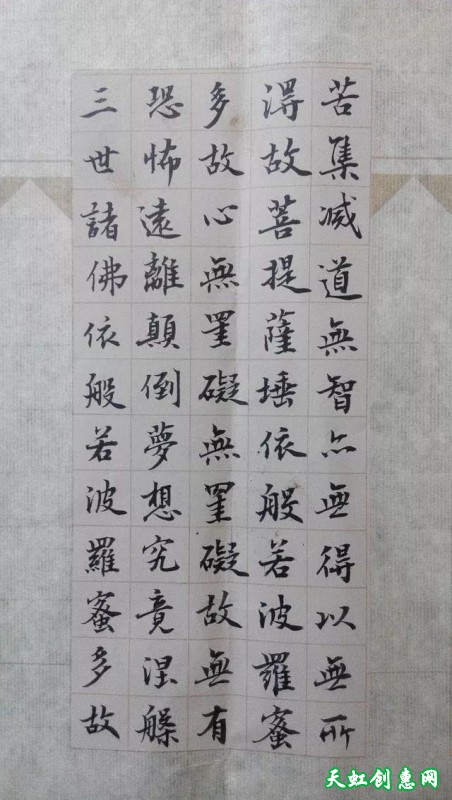 苦集滅道無智亦無得以無所
得故菩提薩埵依般若波羅蜜
多故心無罣礙無罣礙故無有
恐怖遠離顛倒夢想究竟涅槃
三世諸佛依般若波羅蜜多故
天虹创惠网